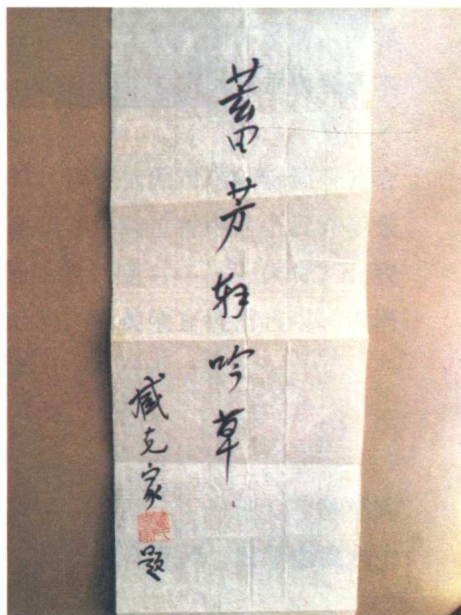 蓄芳轩吟草
臧克家题